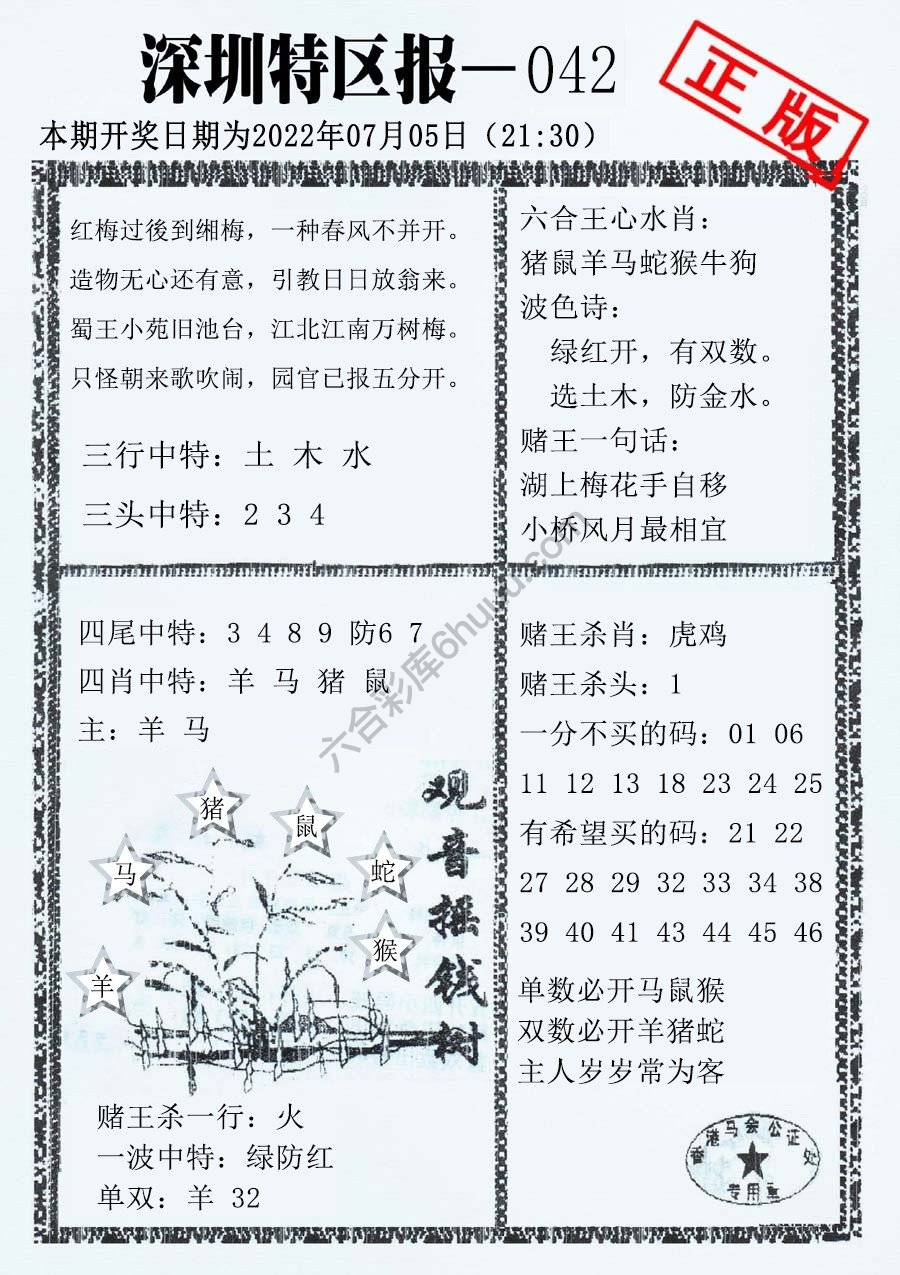 深圳特区报—042
正版
本期开奖日期为2022年07月05日（21:30）
红梅过後到缃梅，一种春风不并开。
造物无心还有意，引教日日放翁来。
蜀王小苑旧池台，江北江南万树梅。
只怪朝来歌吹闹，园官已报五分开。
三行中特：土 木 水
三头中特：2 3 4
六合王心水肖：
猪鼠羊马蛇猴牛狗
波色诗：
绿红开，有双数。
选土木，防金水。
赌王一句话：
湖上梅花手自移
小桥风月最相宜
四尾中特：3 4 8 9 防6 7
四肖中特：羊 马 猪 鼠
主：羊 马
猪
鼠
马
蛇
猴
羊
观音摇钱树
赌王杀一行：火
一波中特：绿防红
单双：羊 32
赌王杀肖：虎鸡
赌王杀头：1
一分不买的码：01 06
11 12 13 18 23 24 25
有希望买的码：21 22
27 28 29 32 33 34 38
39 40 41 43 44 45 46
单数必开马鼠猴
双数必开羊猪蛇
主人岁岁常为客
香港马会公证处
专用章
六合彩库6huuu.com